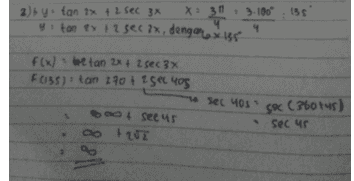 2) + y = tan 2x + 2 sec 3x x = 3π/4 = 3.180°/4 = 135°
y = tan 2x + 2 sec 3x, dengan x = 135°
f(x) = tan 2x + 2 sec 3x
f(135) = tan 270 + 2 sec 405
sec 405 = sec (360+45)
= sec 45
= ∞ + sec 45
= ∞ + 2√2
= ∞